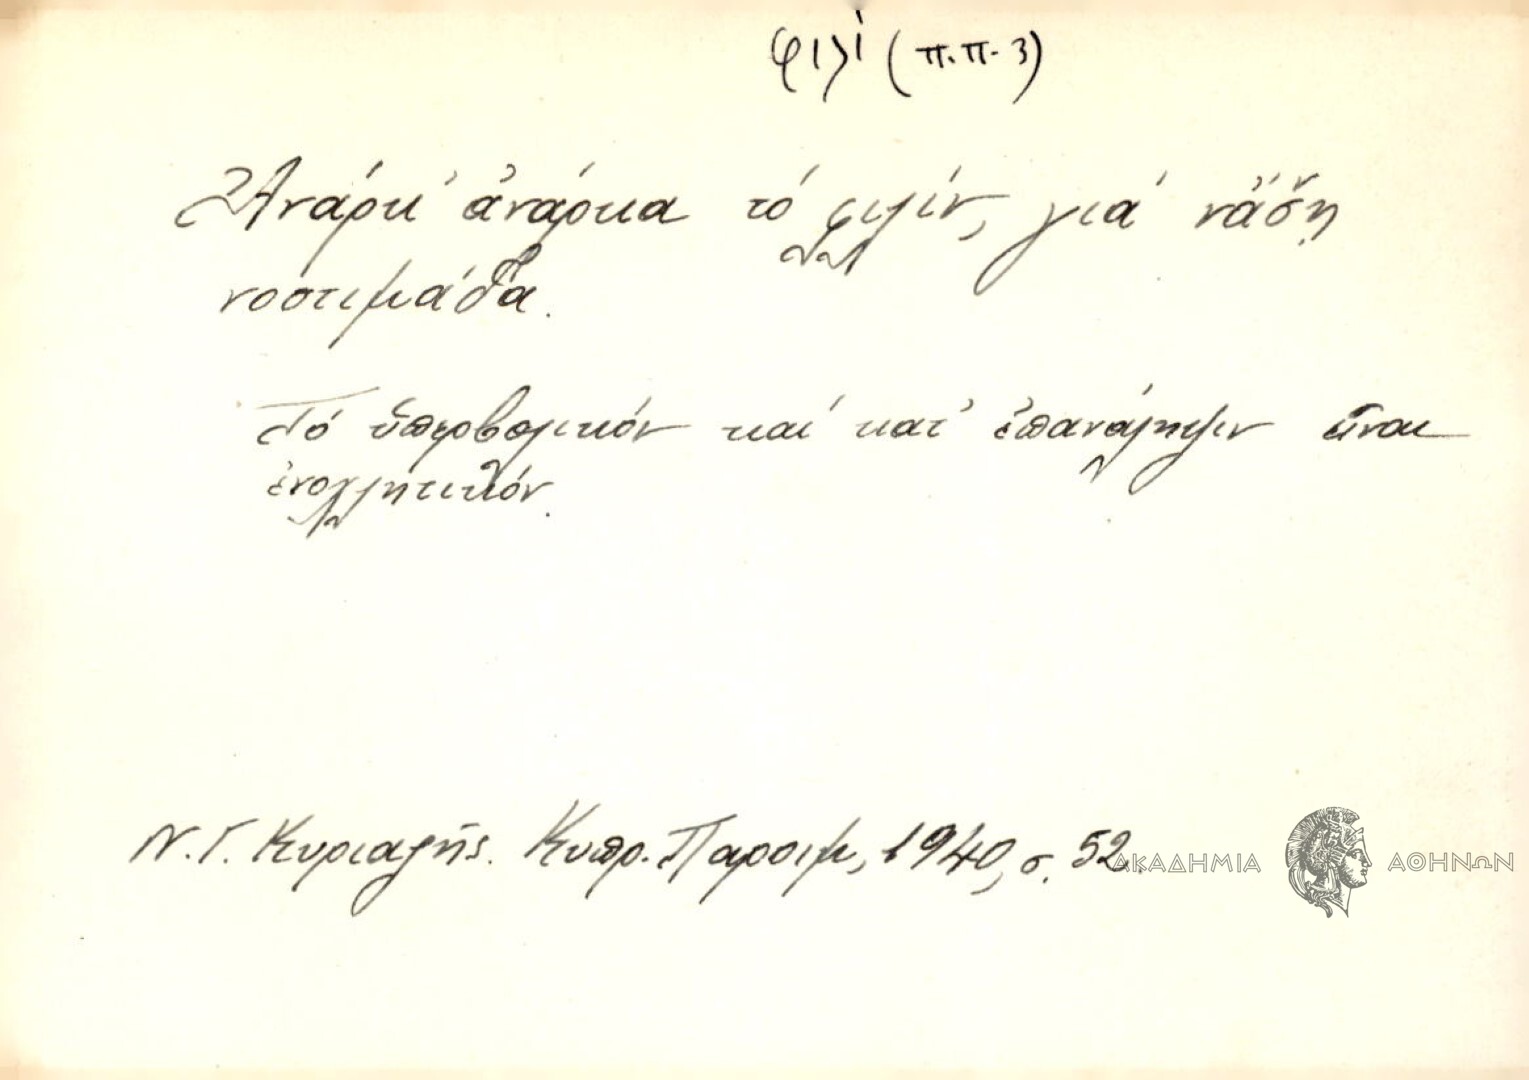 φιλί (π.π. 3)
Ἀνάρκ' ἀνάρκα τό φιλίν, γιά νἄσῃ
νοστιμάδα.
Τό ὑπερβολικόν καί κατ' ἐπανάληψιν εἶναι
ἐνοχλητικόν.
Ν. Γ. Κυριαζῆς. Κυπρ. Παροιμ, 1940, σ. 52.
ΑΚΑΔΗΜΙΑ ΑΘΗΝΩΝ